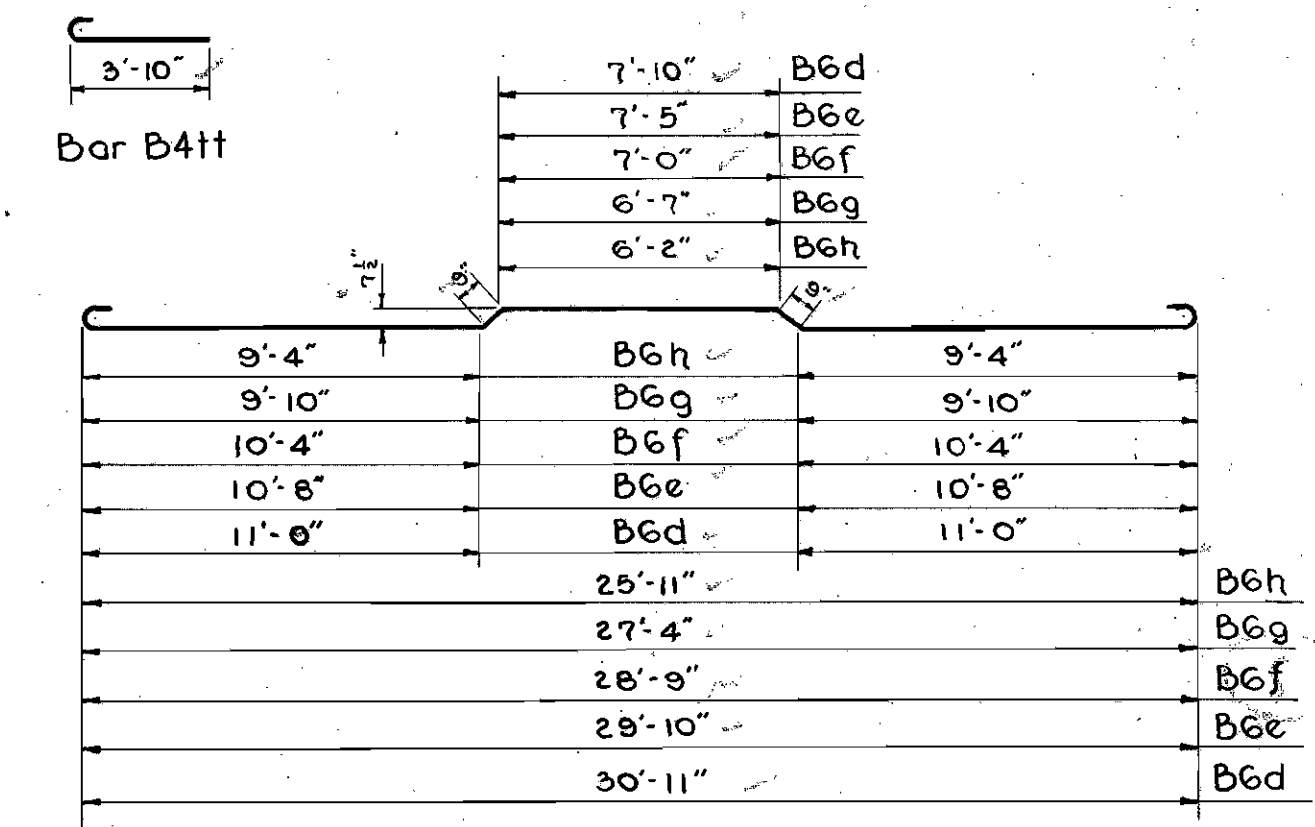 3'-10"
Bar B4tt
7'-10" B6d
7'-5" B6e
7'-0" B6f
6'-7" B6g
6'-2" B6h
7 1/2"
9"
9"
9'-4" B6h 9'-4"
9'-10" B6g 9'-10"
10'-4" B6f 10'-4"
10'-8" B6e 10'-8"
11'-0" B6d 11'-0"
25'-11" B6h
27'-4" B6g
28'-9" B6f
29'-10" B6e
30'-11" B6d